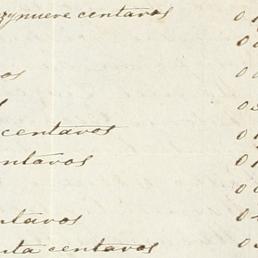 zynueve centavos 0
0
os 0
0
centavos 0
entavos 0
0
ntavos 0
nta centavos 0